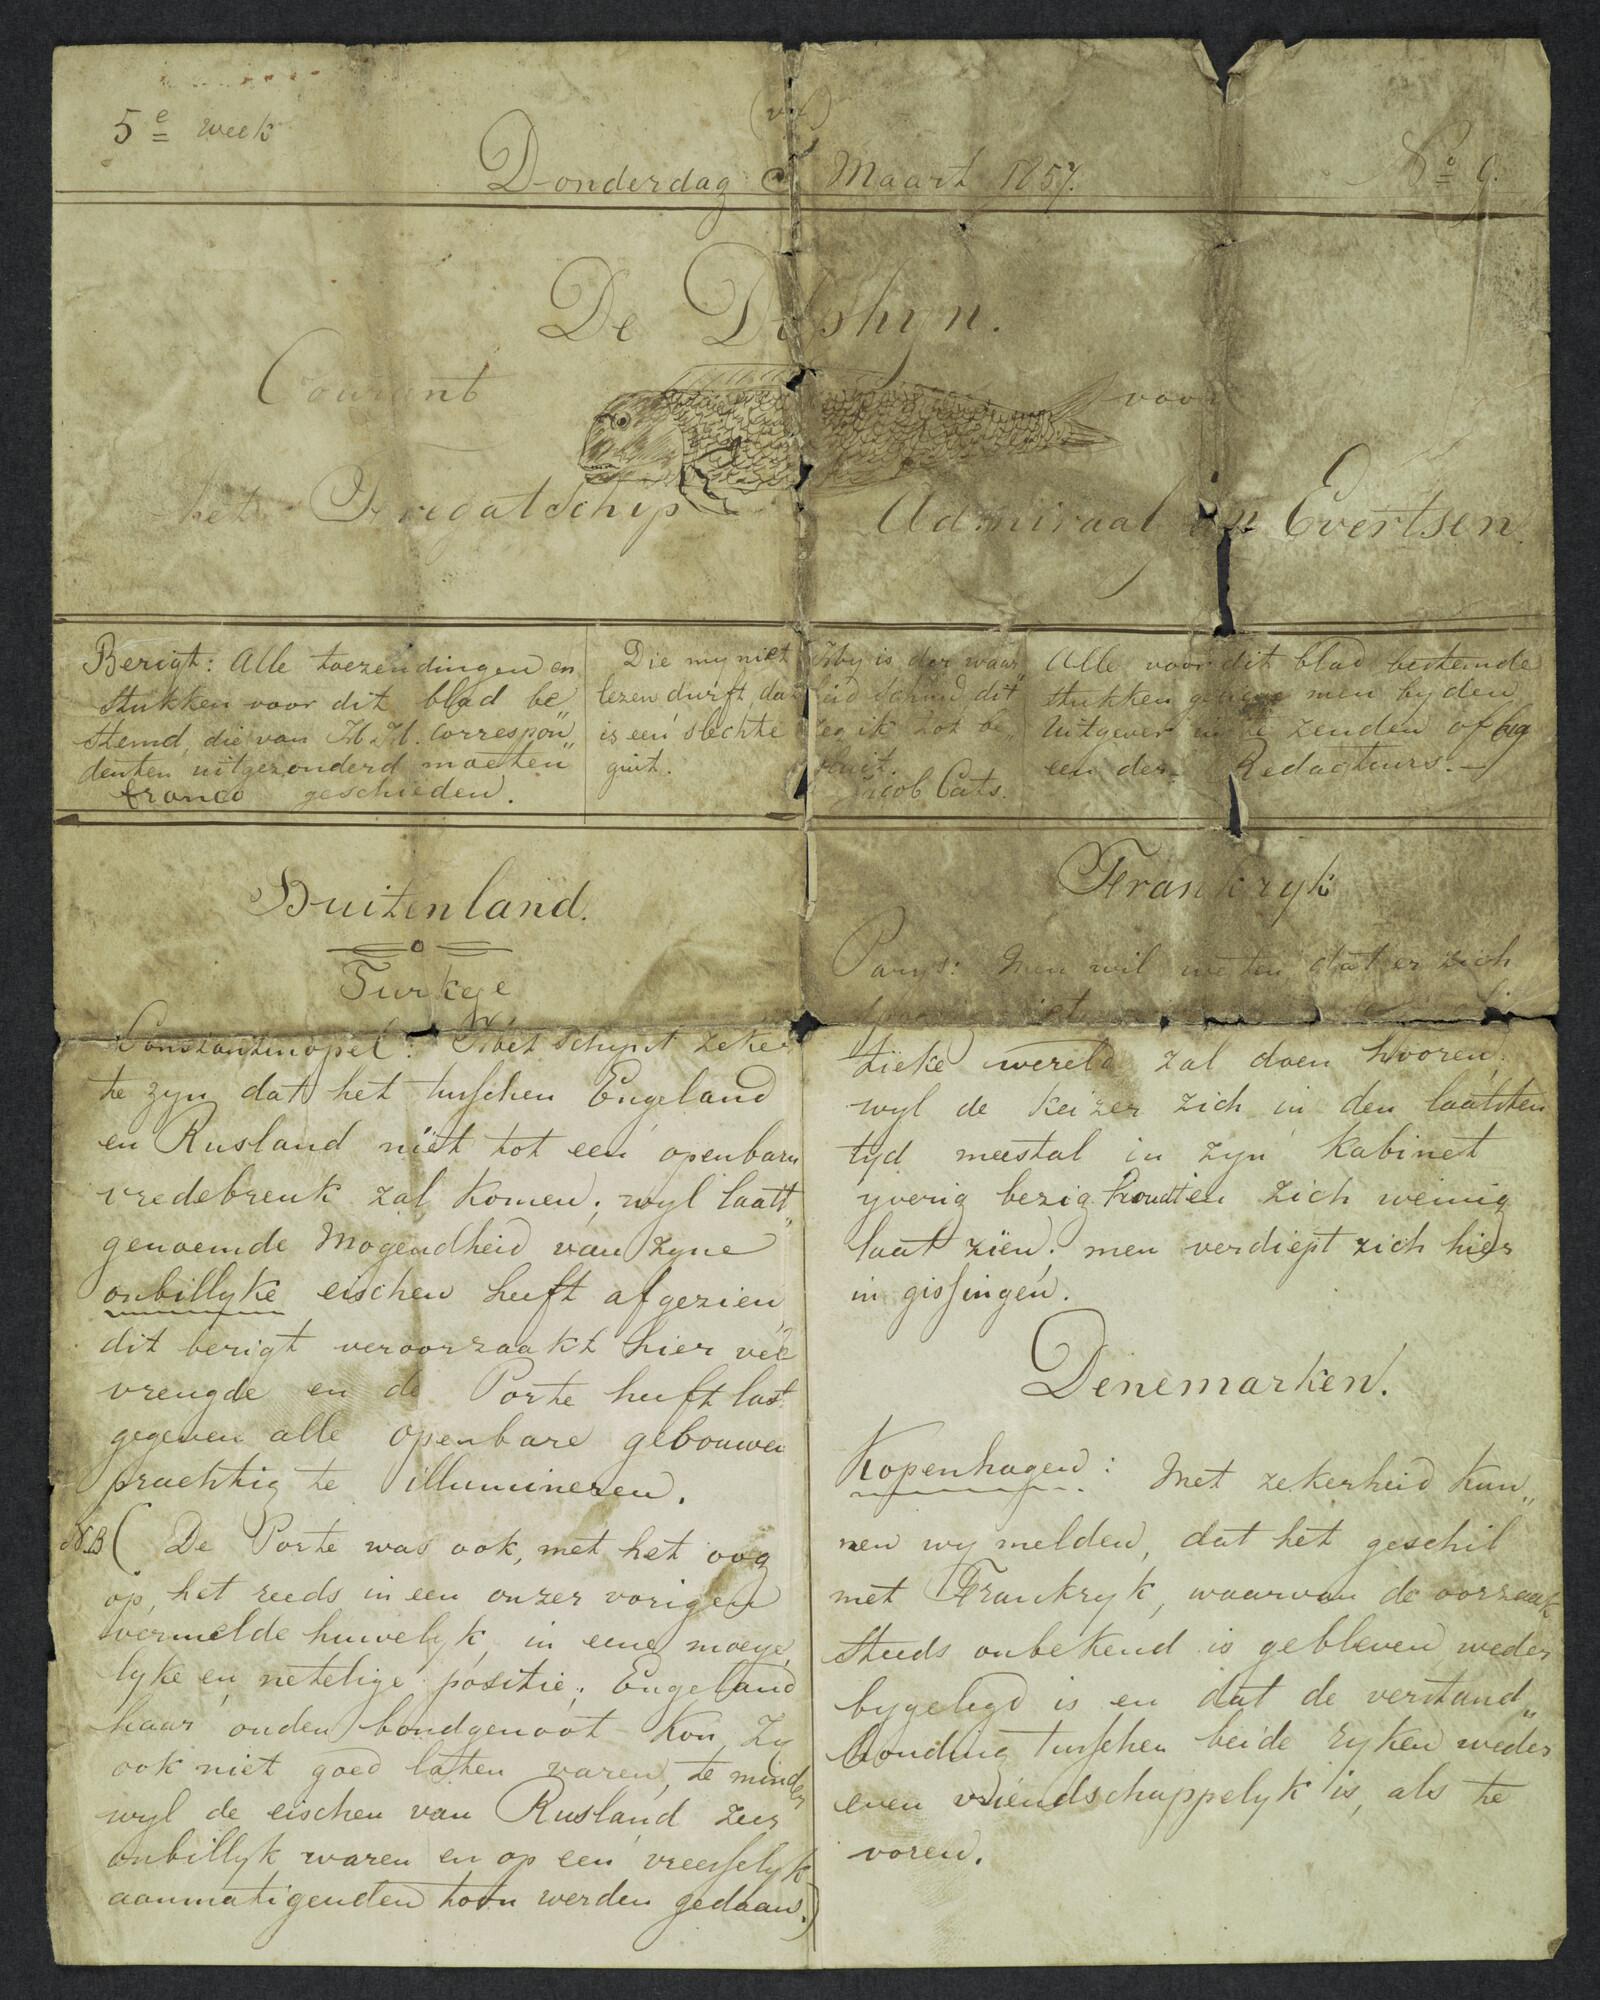 5e week
Donderdag Maart 1857.
No 9.
De Dolphyn.
Courant voor
het Fregatschip Admiraal van Evertsen.
Berigt: Alle toezendingen en
stukken voor dit blad be
stemd, die van H.H. Correspon„
denten uitgezonderd moeten
franco geschieden.
Die my niet
lezen durft, dat
is een slechte
guit.
Hy is der waar„
heid schuw dit
zeg ik tot be„
sluit.
Jacob Cats.
Alle voor dit blad bestemde
stukken gelieve men by den
Uitgever in te zenden of by
een der Redacteurs.
Buitenland.
Turkye
Constantinopel: Het schynt zeker
te zyn dat het tusschen Engeland
en Rusland niet tot een openbare
vredebreuk zal komen; wyl laatst„
genoemde Mogendheid van zyne
onbillyke eischen heeft afgezien„
dit berigt veroorzaakt hier veel
vreugde en de Porte heeft last
gegeven alle openbare gebouwen
prachtig te illumineren.
N.B. ( De Porte was ook, met het oog
op, het reeds in een onzer vorigen
vermelde huwelyk, in eene moeye
lyke en netelige positie; Engeland
haar ouden bondgenoot kon zy
ook niet goed laten varen, te minder
wyl de eischen van Rusland zeer
onbillyk waren en op een vreesselyk
aanmatigenden toon werden gedaan.)
Frankryk
Parys: Men wil weten dat er zich
tieke wereld zal doen hooren,
wyl de Keizer zich in den laatsten
tyd meestal in zyn kabinet
yverig bezig houdt en zich weinig
laat zien; men verdiept zich hier
in gissingen.
Denemarken.
Kopenhagen: Met zekerheid kun„
nen wy melden, dat het geschil
met Frankryk, waarvan de oorzaak
steeds onbekend is gebleven weder
bygelegd is en dat de verstand„
houding tusschen beide ryken weder
even vriendschappelyk is, als te
voren.